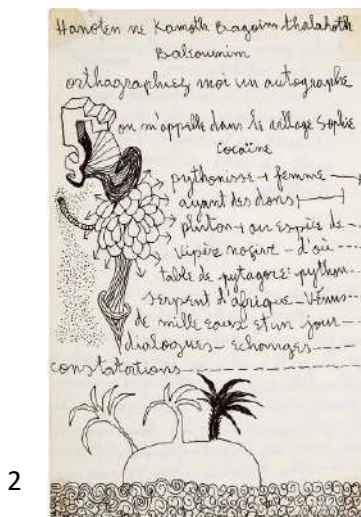 Hanoten ne Kamoth Bagoim thalahoth
Baleoumim
orthagraphiez moi un autographe
on m'appelle dans le village Sophie
Cocaïne
pythonisse + femme
ayant des dons
phiton + ou espèce de
vipère - d'où
table de pytagore: python
serpent d'afrique - Vénus
de mille eaux et un jour
dialogues - echanges
constatations
2